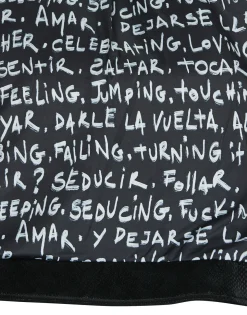 R, AMAR, DEJARSE L
HER. CELEBRATING. LOVIN
SENTIR, SALTAR, TOCAR
FEELING, JUMPING, TOUCHIN
YAR, DARLE LA VUELTA, A
BING, FAILING, TURNING I
IR? SEDUCIR. FOLLAR,
EEPING. SEDUCING, FUCKIN
AMAR. Y DEJARSE L